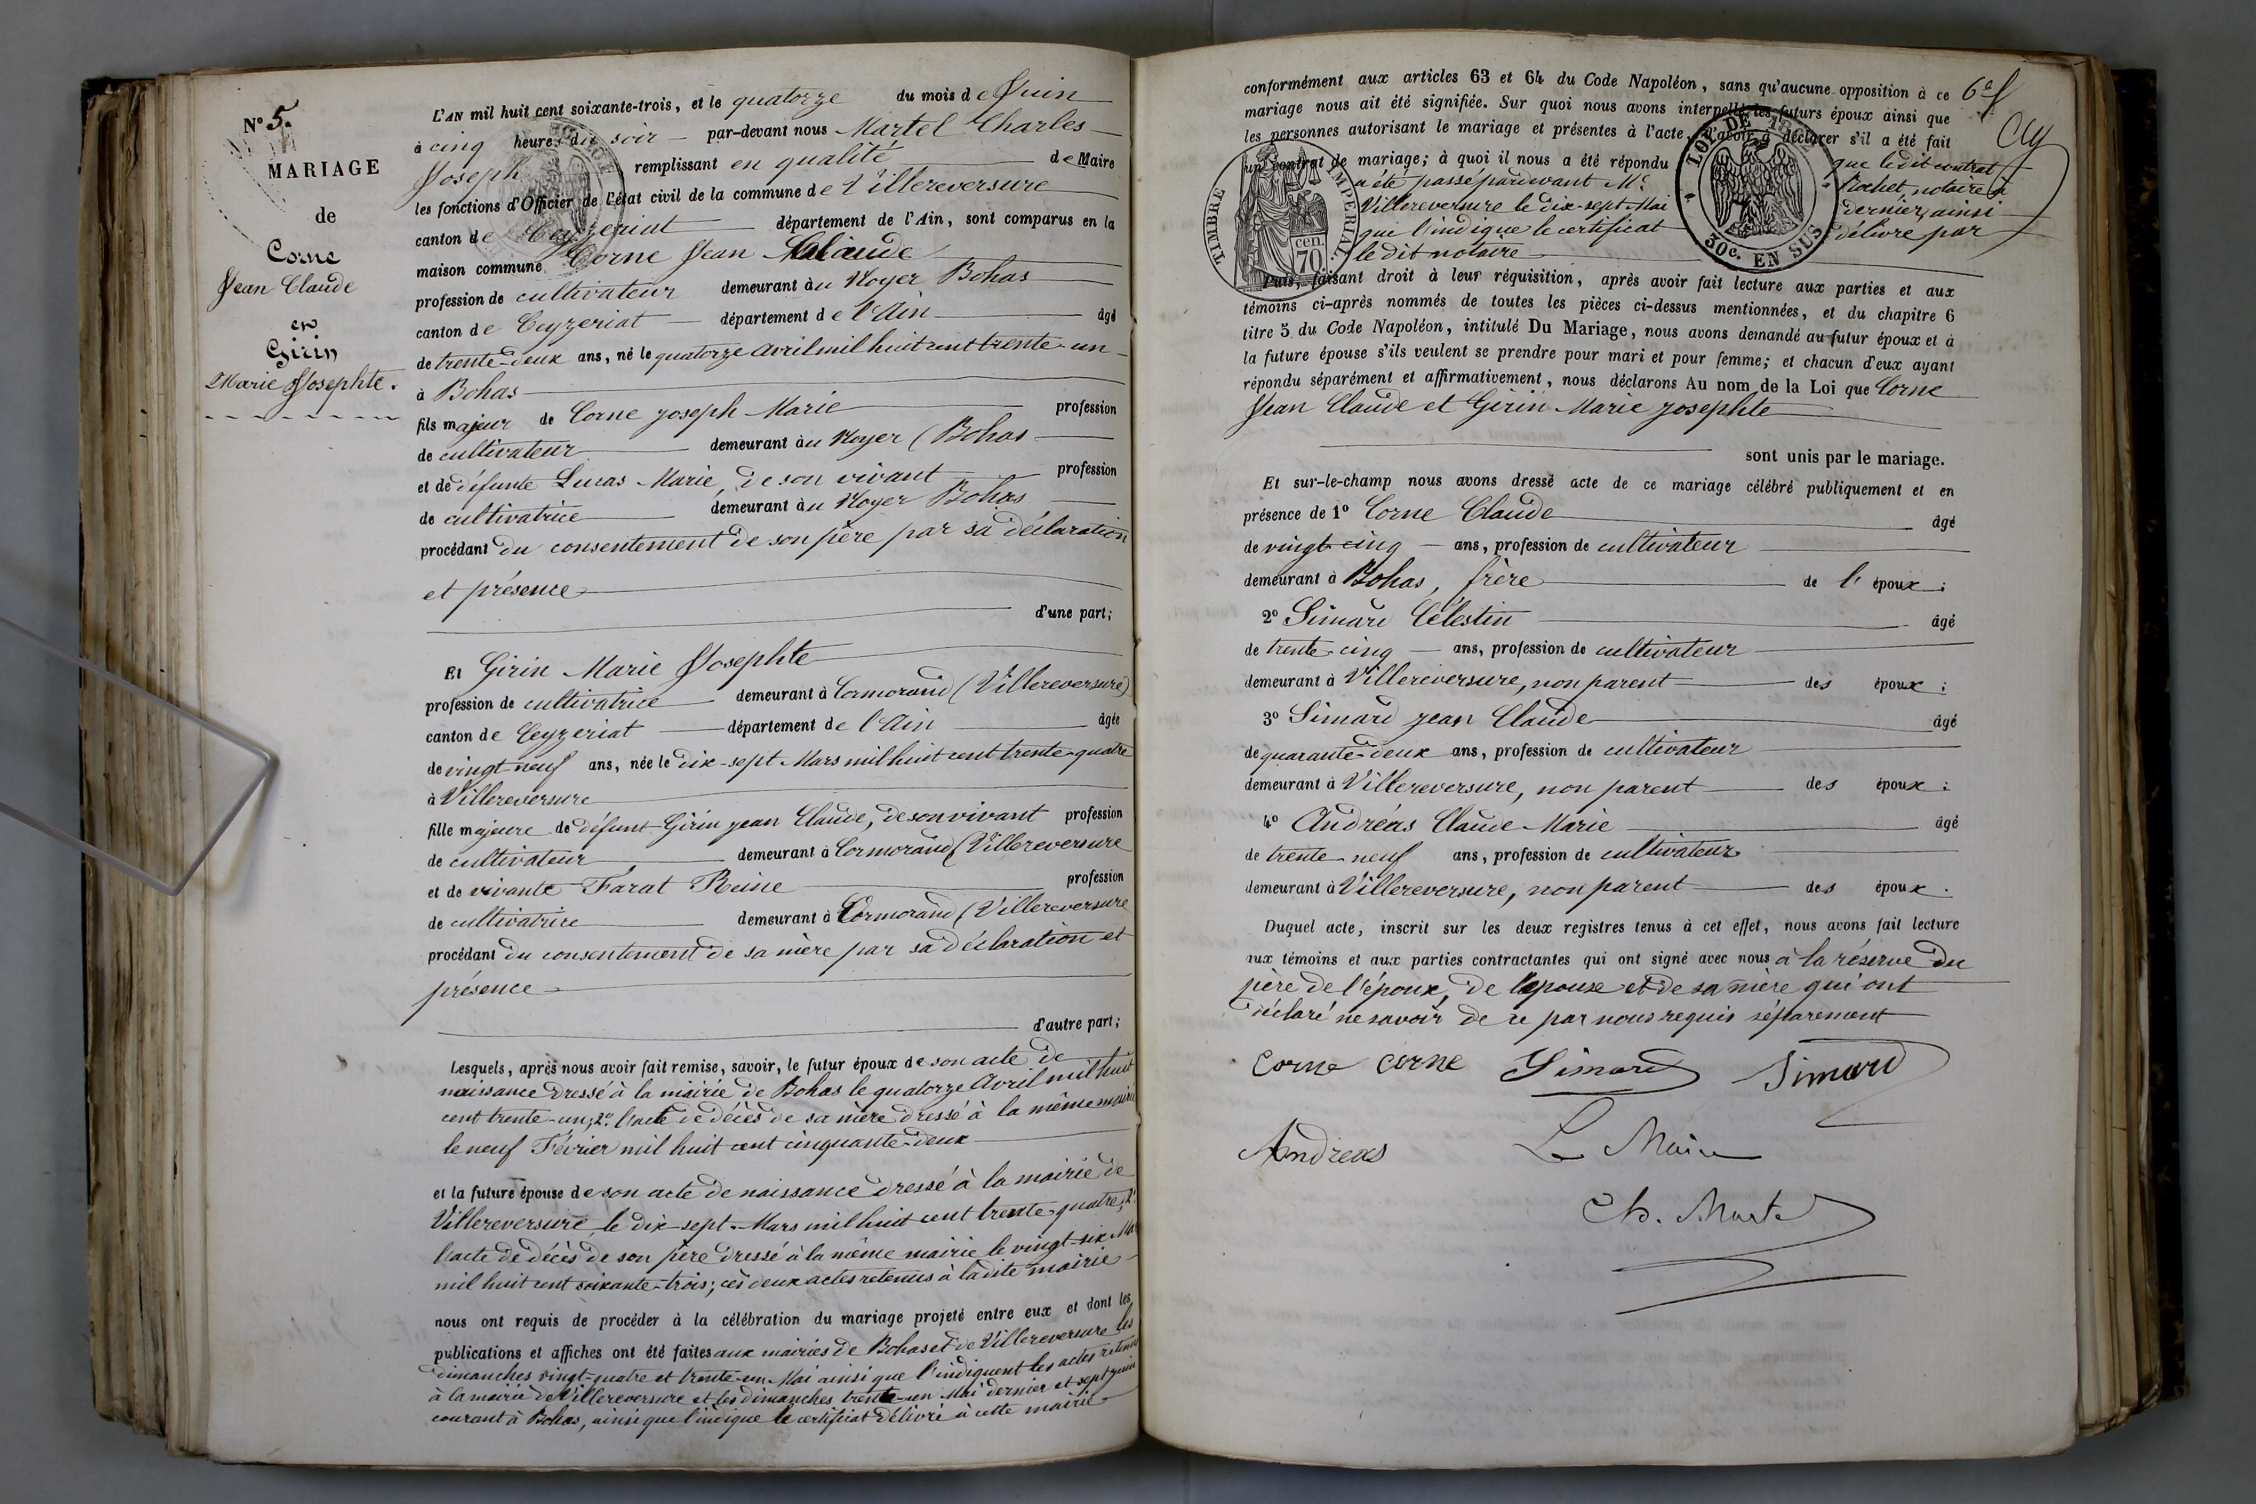 N° 5.
MARIAGE
de
Corne
Jean Claude
et
Girin
Marie Josephte.
L'AN mil huit cent soixante-trois, et le quatorze du mois de Juin
à cinq heures du soir par-devant nous Martel Charles
Joseph remplissant en qualité de Maire
les fonctions d'Officier de l'état civil de la commune de Villereversure
canton de Ceyzeriat département de l'Ain, sont comparus en la
maison commune Corne Jean Claude
profession de cultivateur demeurant au Noyer Bohas
canton de Ceyzeriat département de l'Ain âgé
de trente-deux ans, né le quatorze avril mil huit cent trente-un
à Bohas
fils majeur de Corne joseph Marie profession
de cultivateur demeurant au Noyer (Bohas
et de défunte Lucas Marie, de son vivant profession
de cultivatrice demeurant au Noyer Bohas
procédant du consentement de son père par sa déclaration
et présence
d'une part;
Et Girin Marie Josephte
profession de cultivatrice demeurant à Cormorand (Villereversure)
canton de Ceyzeriat département de l'Ain âgée
de vingt neuf ans, née le dix-sept Mars mil huit cent trente-quatre
à Villereversure
fille majeure de défunt Girin jean Claude, de son vivant profession
de cultivateur demeurant à Cormorand (Villereversure
et de vivante Farat Reine profession
de cultivatrice demeurant à Cormorand (Villereversure
procédant du consentement de sa mère par sa déclaration et
présence
d'autre part;
Lesquels, après nous avoir fait remise, savoir, le futur époux de son acte de
naissance dressé à la mairie de Bohas le quatorze Avril mil huit
cent trente-un; 2° l'acte de décès de sa mère dressé à la même mairie
le neuf Février mil huit cent cinquante-deux
et la future épouse de son acte de naissance dressé à la mairie de
Villereversure le dix-sept Mars mil huit cent trente-quatre; 2°
l'acte de décès de son père dressé à la même mairie le vingt-six
mil huit cent soixante-trois; ces deux actes retenus à ladite mairie
nous ont requis de procéder à la célébration du mariage projeté entre eux et dont les
publications et affiches ont été faites aux mairies de Bohas et de Villereversure les
dimanches vingt-quatre et trente-un Mai ainsi que l'indiquent les actes retenus
à la mairie de Villereversure et les dimanches trente-un Mai dernier et sept juin
courant à Bohas, ainsi que l'indique le certificat délivré à cette mairie
conformément aux articles 63 et 64 du Code Napoléon, sans qu'aucune opposition à ce
mariage nous ait été signifiée. Sur quoi nous avons interpellé les futurs époux ainsi que
les personnes autorisant le mariage et présentes à l'acte, d'avoir à déclarer s'il a été fait
un contrat de mariage; à quoi il nous a été répondu que ledit contrat
a été passé pardevant Me Rochet, notaire à
Villereversure le dix-sept Mai dernier, ainsi
que l'indique le certificat délivré par
le dit notaire
TIMBRE IMPERIAL
cen. 70
LOI DE
30c. EN SUS
Puis, faisant droit à leur réquisition, après avoir fait lecture aux parties et aux
témoins ci-après nommés de toutes les pièces ci-dessus mentionnées, et du chapitre 6
titre 5 du Code Napoléon, intitulé Du Mariage, nous avons demandé au futur époux et à
la future épouse s'ils veulent se prendre pour mari et pour femme; et chacun d'eux ayant
répondu séparément et affirmativement, nous déclarons Au nom de la Loi que Corne
Jean Claude et Girin Marie josephte
sont unis par le mariage.
Et sur-le-champ nous avons dressé acte de ce mariage célébré publiquement et en
présence de 1° Corne Claude âgé
de vingt cinq ans, profession de cultivateur
demeurant à Bohas, frère de l'époux;
2° Simard Célestin âgé
de trente-cinq ans, profession de cultivateur
demeurant à Villereversure, non parent des époux;
3° Simard jean Claude âgé
de quarante-deux ans, profession de cultivateur
demeurant à Villereversure, non parent des époux;
4° Andréas Claude-Marie âgé
de trente neuf ans, profession de cultivateur
demeurant à Villereversure, non parent des époux.
Duquel acte, inscrit sur les deux registres tenus à cet effet, nous avons fait lecture
aux témoins et aux parties contractantes qui ont signé avec nous à la réserve du
père de l'époux, de l'epouse et de sa mère qui ont
déclaré ne savoir de ce par nous requis séparement
Corne corne Simard Simard
Andreas Le Maire
Ch. Martel